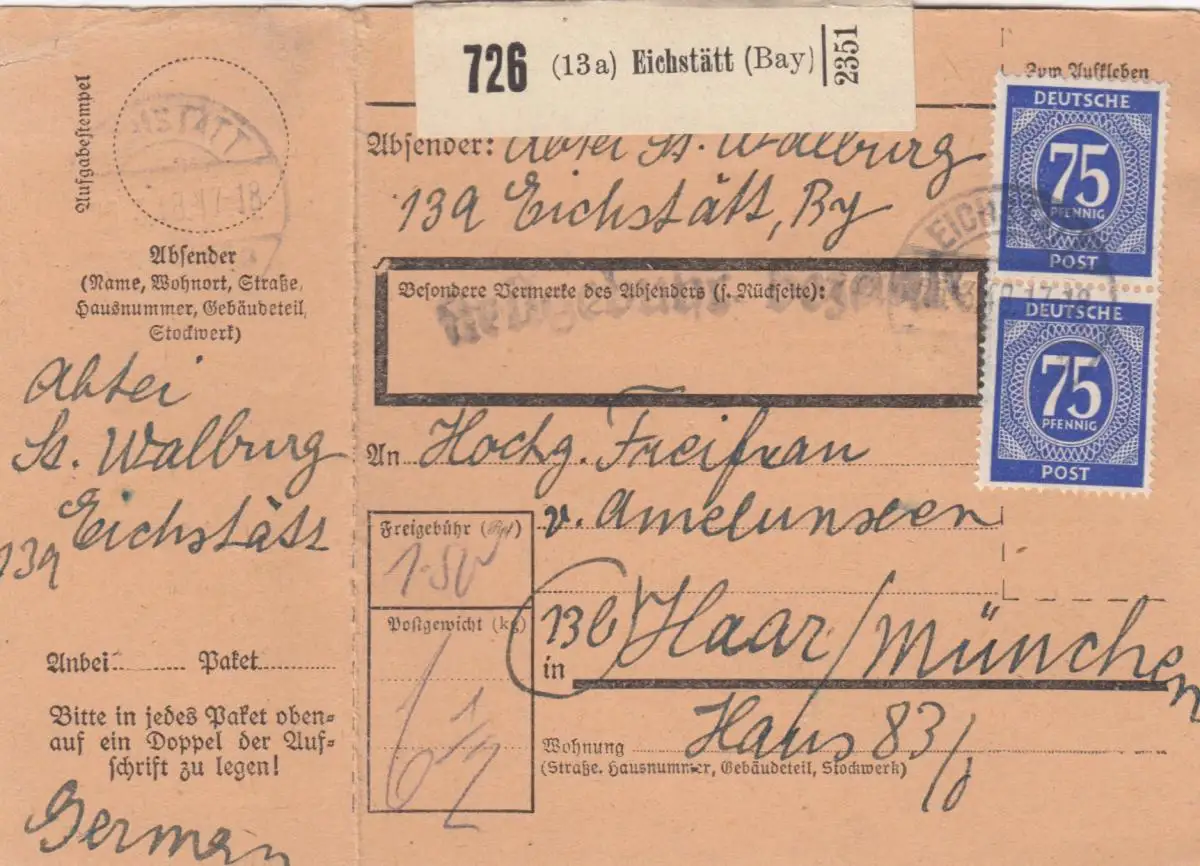 726 (13a) Eichstätt (Bay) 2351
Zum Aufkleben
Aufgabestempel
Absender
(Name, Wohnort, Straße,
Hausnummer, Gebäudeteil,
Stockwerk)
Abtei
St. Walburg
Eichstätt
13a
Anbei Paket
Bitte in jedes Paket oben=
auf ein Doppel der Auf=
schrift zu legen!
German
Absender: Abtei St. Walburg
13a Eichstätt, By
Besondere Vermerke des Absenders (s. Rückseite):
An Hochg. Freifrau
v. Amelunxen
Freigebühr (Rpf)
1.50
Postgewicht (kg)
6 1/2
(13b) Haar/München
in
Haus 83/
Wohnung
(Straße, Hausnummer, Gebäudeteil, Stockwerk)
DEUTSCHE
75
PFENNIG
POST
DEUTSCHE
75
PFENNIG
POST